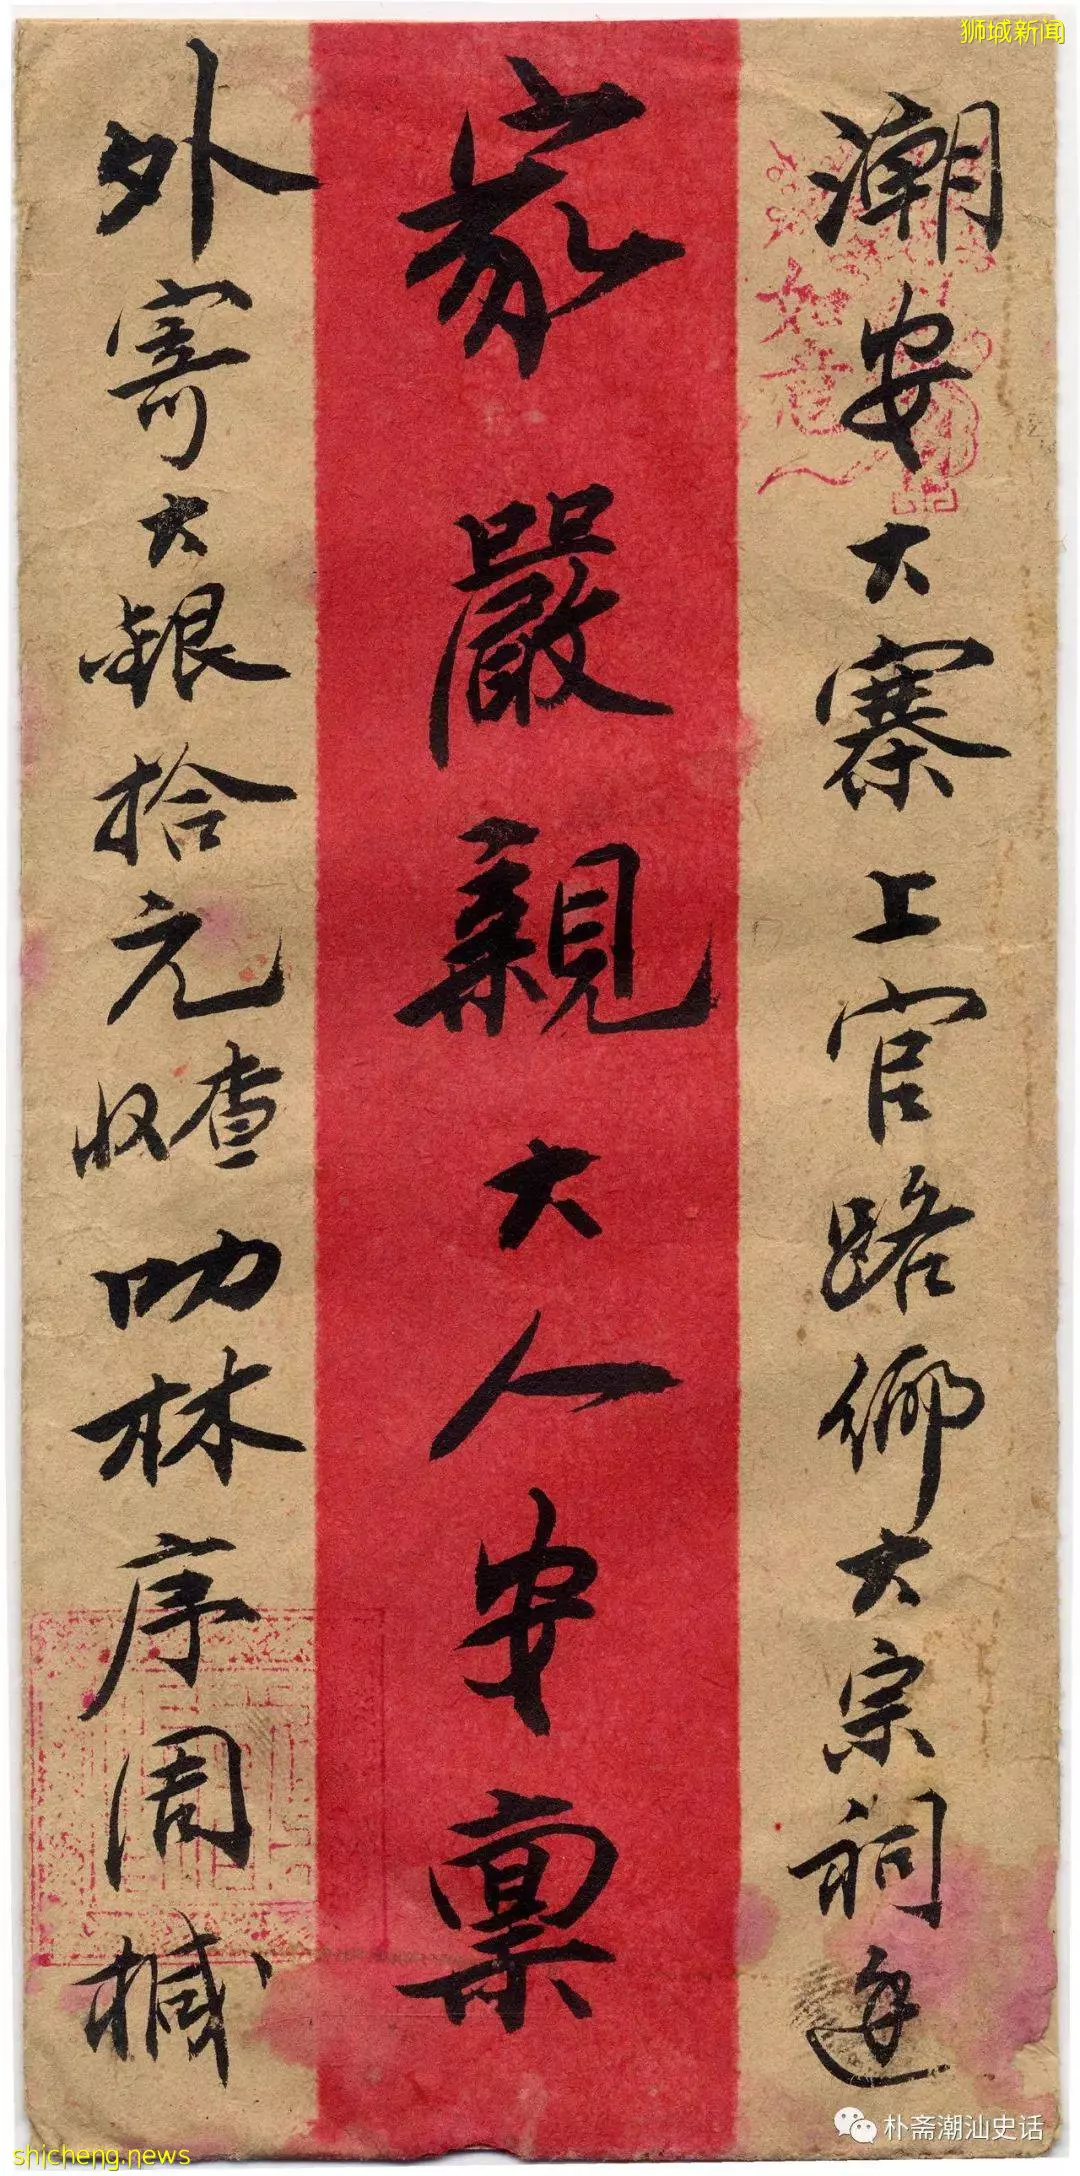 狮城新闻
潮安大寨上官路鄉大宗祠送
家嚴親大人安稟
外寄大銀拾元查收 叻林序周槭
如意
朴斋潮汕史话
shicheng.news